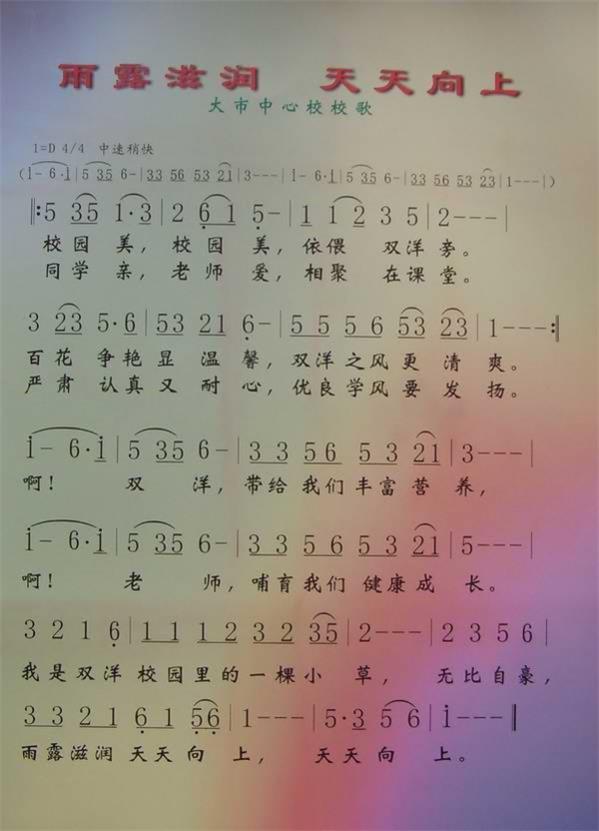 雨露滋润 天天向上
大市中心校校歌
1=D 4/4 中速稍快
(i- 6·i|5 35 6-|33 56 53 21|3---|i- 6·i|5 35 6-|33 56 53 23|1---)
‖:5 35 1·3|2 6 1 5-|1 1 2 3 5|2---|
校园 美，校园 美，依偎 双洋旁。
同学 亲，老师 爱，相聚 在课堂。
3 23 5·6|53 21 6-|5 5 5 6 53 23|1---:‖
百花 争艳显 温 馨，双洋之风更 清 爽。
严肃 认真又 耐 心，优良学风要 发 扬。
i- 6·i|5 35 6-|3 3 56 5 3 21|3---|
啊！ 双 洋，带给我们丰富营 养，
i- 6·i|5 35 6-|3 3 56 5 3 21|5---|
啊！ 老 师，哺育我们 健康成 长。
3 2 1 6|1 1 1 2 3 2 35|2---|2 3 5 6|
我是双洋 校园里的一棵小 草， 无比自豪，
33 21 6 1 56|1---|5·3 5 6|i--‖
雨露滋润 天天 向 上， 天天 向 上。